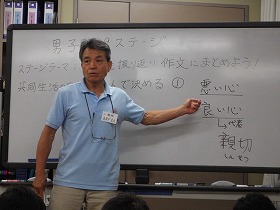 男子 ステージ
ステージテーマ 振り返り 作文にまとめよう!
共同生活 んで決める ①
悪い心
良い心
代表
親切
しんせつ